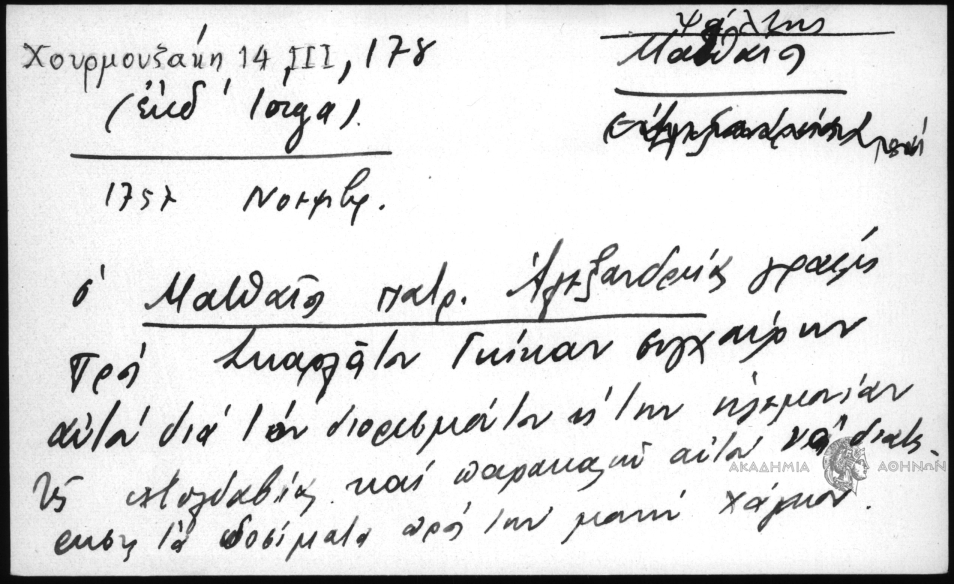 Χουρμουζάκη 14 III, 178
(ἐκδ. Ἰόργα).
Ψάλτης
Ματθαῖος
1757 Νοεμβρ.
ὁ Ματθαῖος πατρ. Ἀλεξανδρείας γράφει
πρὸς Σκαρλᾶτον Γκίκαν συγχαίρων
αὐτὸν διὰ τὸν διορισμόν του εἰς τὴν ἡγεμονίαν
τῆς Μολδαβίας καὶ παρακαλεῖ αὐτὸν νὰ διατη-
ρήσῃ τὰ δοσίματα πρὸς τὴν μονὴν
ΑΚΑΔΗΜΙΑ ΑΘΗΝΩΝ